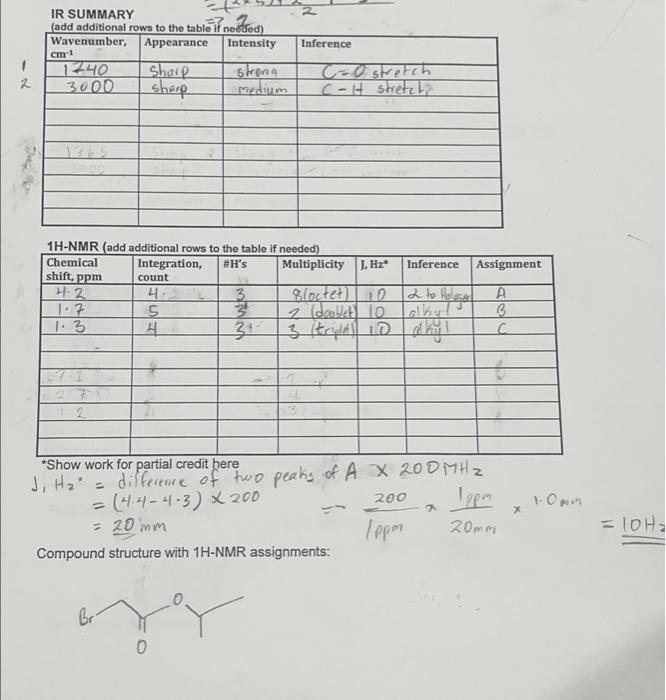 IR SUMMARY
(add additional rows to the table if needed)
=> 2
2
Wavenumber, cm-1 Appearance Intensity Inference
1 1740 sharp strong C=O stretch
2 3000 sharp medium C-H stretch
1765
1H-NMR (add additional rows to the table if needed)
Chemical shift, ppm Integration, count #H's Multiplicity J, Hz* Inference Assignment
4.2 4. 3 8(octet) 10 α to A
1.7 5 3 2 (doublet) 10 alkyl B
1.3 4 3 3 (triplet) 10 alkyl C
7.1
2.7 4
1.2 3
*Show work for partial credit here
J, Hz* = difference of two peaks of A X 200MHz
= (4.4-4.3) x 200
= 20 mm
=> 200 / 1ppm x 1ppm / 20mm x 1.0mm
= 10Hz
Compound structure with 1H-NMR assignments:
Br O
O